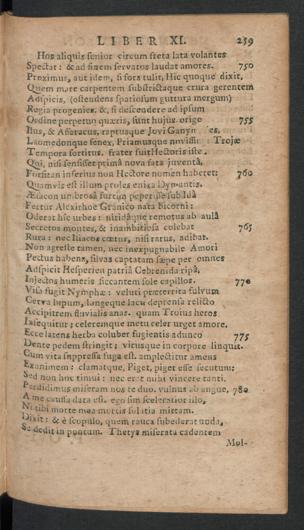 LIBER XI. 259
Hos aliquis senior circum freta lata volantes
Spectat: & ad finem servatos laudat amores. 750
Proximus, aut idem, si fors tulit, Hic quoque dixit,
Quem mare carpentem substrictaque crura gerentem
Adspicis, (ostendens spatiosum guttura mergum)
Regia progenies. &, si descendere ad ipsum
Ordine perpetuo quæris, sunt hujus origo 755
Ilus, & Assaracus, raptusque Jovi Ganymedes.
Laomedonque senex, Priamusque novissima Trojæ
Tempora sortitus. frater fuit Hectoris iste.
Qui, nisi sensisset primâ nova fata juventâ,
Forsitan inferius non Hectore nomen haberet: 760
Quamvis est illum proles enixa Dymantis.
Æsacon umbrosâ furtim peperisse sub Idâ
Fertur Alexirhoë Granico nata bicorni.
Oderat hic urbes: nitidâque remotus ab aulâ
Secretos montes, & inambitiosa colebat 765
Rura: nec Iliacos cœtus, nisi rarus, adibat.
Non agreste tamen, nec inexpugnabile Amori
Pectus habens, silvas captatam sæpe per omnes
Adspicit Hesperien patriâ Cebrenida ripâ,
Injectos humeris siccantem sole capillos. 770
Visa fugit Nymphæ: veluti perterrita fulvum
Cerva lupum, longeque lacu deprensa relicto
Accipitrem fluvialis anas. quam Troius heros
Insequitur; celeremque metu celer urget amore.
Ecce latens herba coluber fugientis adunco 775
Dente pedem stringit; virusque in corpore linquit.
Cum vita suppressa fuga est. amplectitur amens
Exanimem: clamatque, Piget, piget esse secutum:
Sed non hoc timui: nec erat mihi vincere tanti.
Perdidimus miseram nos te duo. vulnus ab angue, 780
A me causa data est. ego sim sceleratior illo,
Ni tibi morte mea mortis solatia mittam.
Dixit: & è scopulo, quem rauca subederat unda,
Se dedit in pontum. Thetys miserata cadentem
Mol-